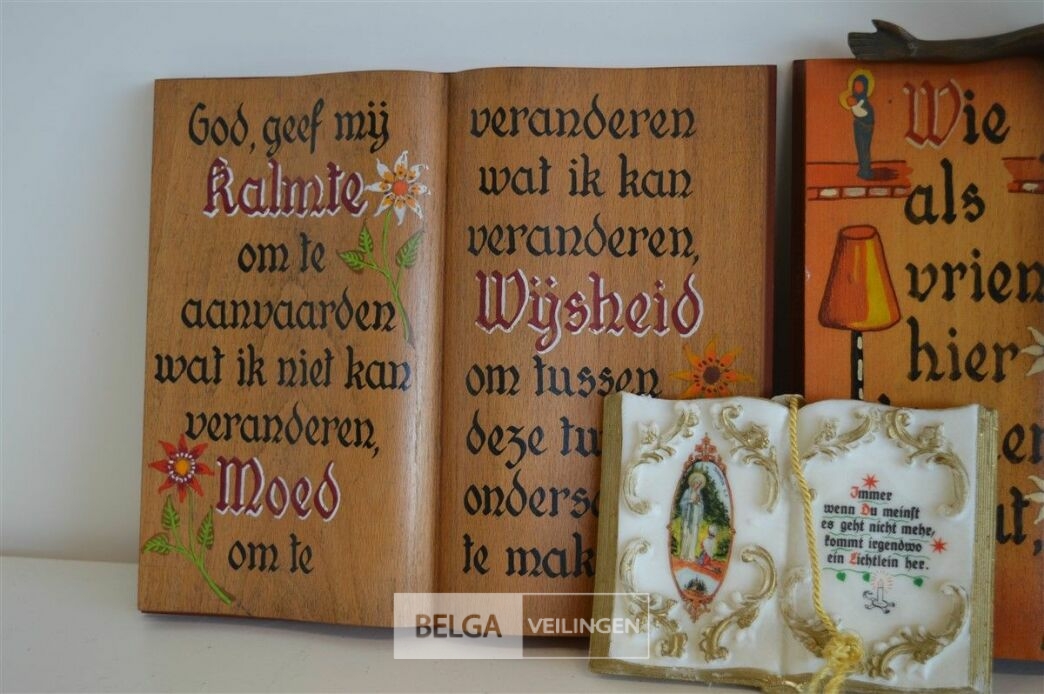 God, geef mij
Kalmte
om te
aanvaarden
wat ik niet kan
veranderen,
Moed
om te
veranderen
wat ik kan
veranderen,
Wijsheid
om tussen
deze
te
Wie
als
hier
Immer
wenn Du meinst
es geht nicht mehr,
kommt irgendwo
ein Lichtlein her.
BELGA VEILINGEN